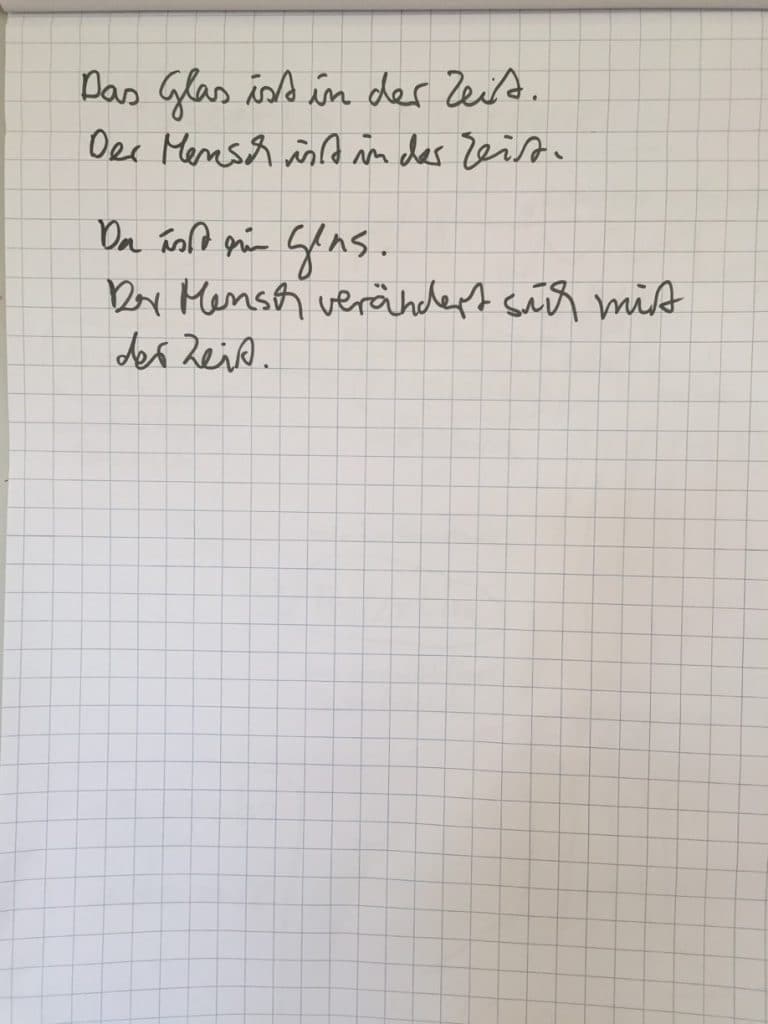 Das Glas ist in der Zeit.
Der Mensch ist in der Zeit.
Da ist ein Glas.
Der Mensch verändert sich mit
der Zeit.